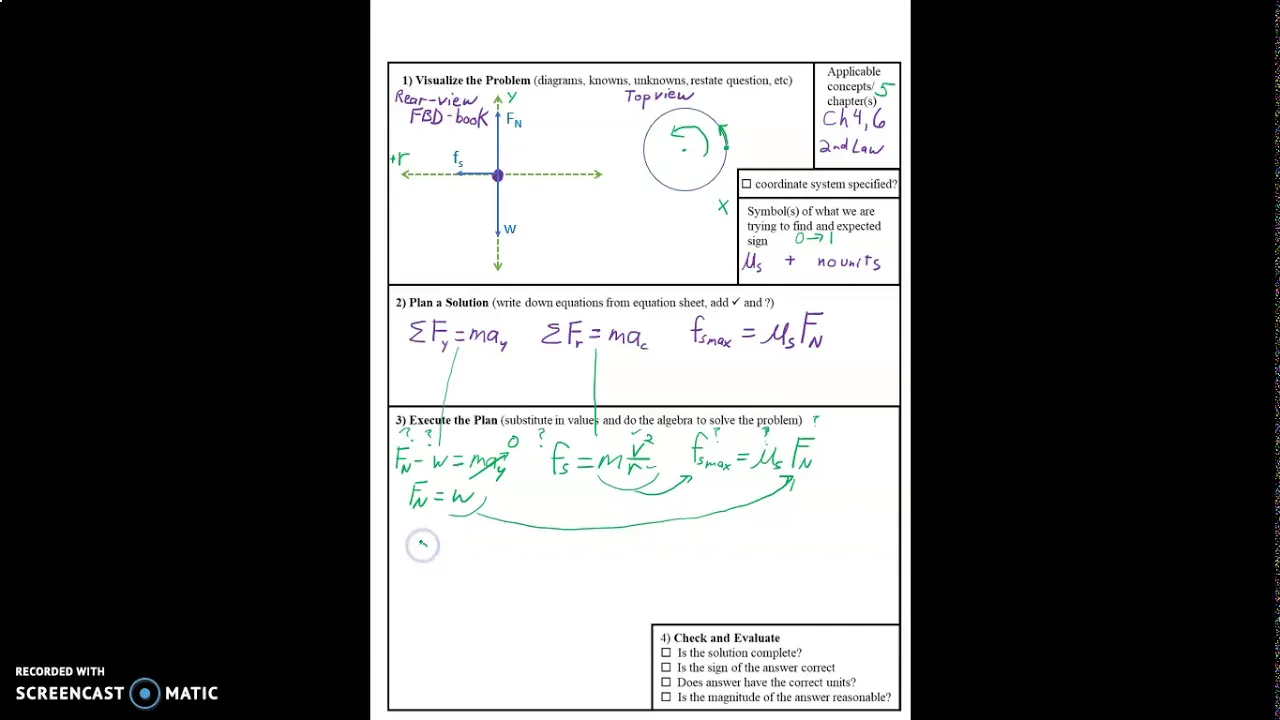 1) Visualize the Problem (diagrams, knowns, unknowns, restate question, etc)
Rear-view
FBD-book
Y
F_N
+r
f_s
W
Top view
X
Applicable
concepts/ 5
chapter(s)
Ch 4, 6
2nd Law
☐ coordinate system specified?
Symbol(s) of what we are
trying to find and expected
sign 0→1
μ_s + no units
2) Plan a Solution (write down equations from equation sheet, add ✓ and ?)
ΣF_y = ma_y ΣF_r = ma_c f_smax = μ_s F_N
3) Execute the Plan (substitute in values and do the algebra to solve the problem) ?
? ? 0 ? ✓ ? ?
F_N - w = ma_y f_s = m v²/r f_smax = μ_s F_N
F_N = w
4) Check and Evaluate
☐ Is the solution complete?
☐ Is the sign of the answer correct
☐ Does answer have the correct units?
☐ Is the magnitude of the answer reasonable?
RECORDED WITH
SCREENCAST MATIC